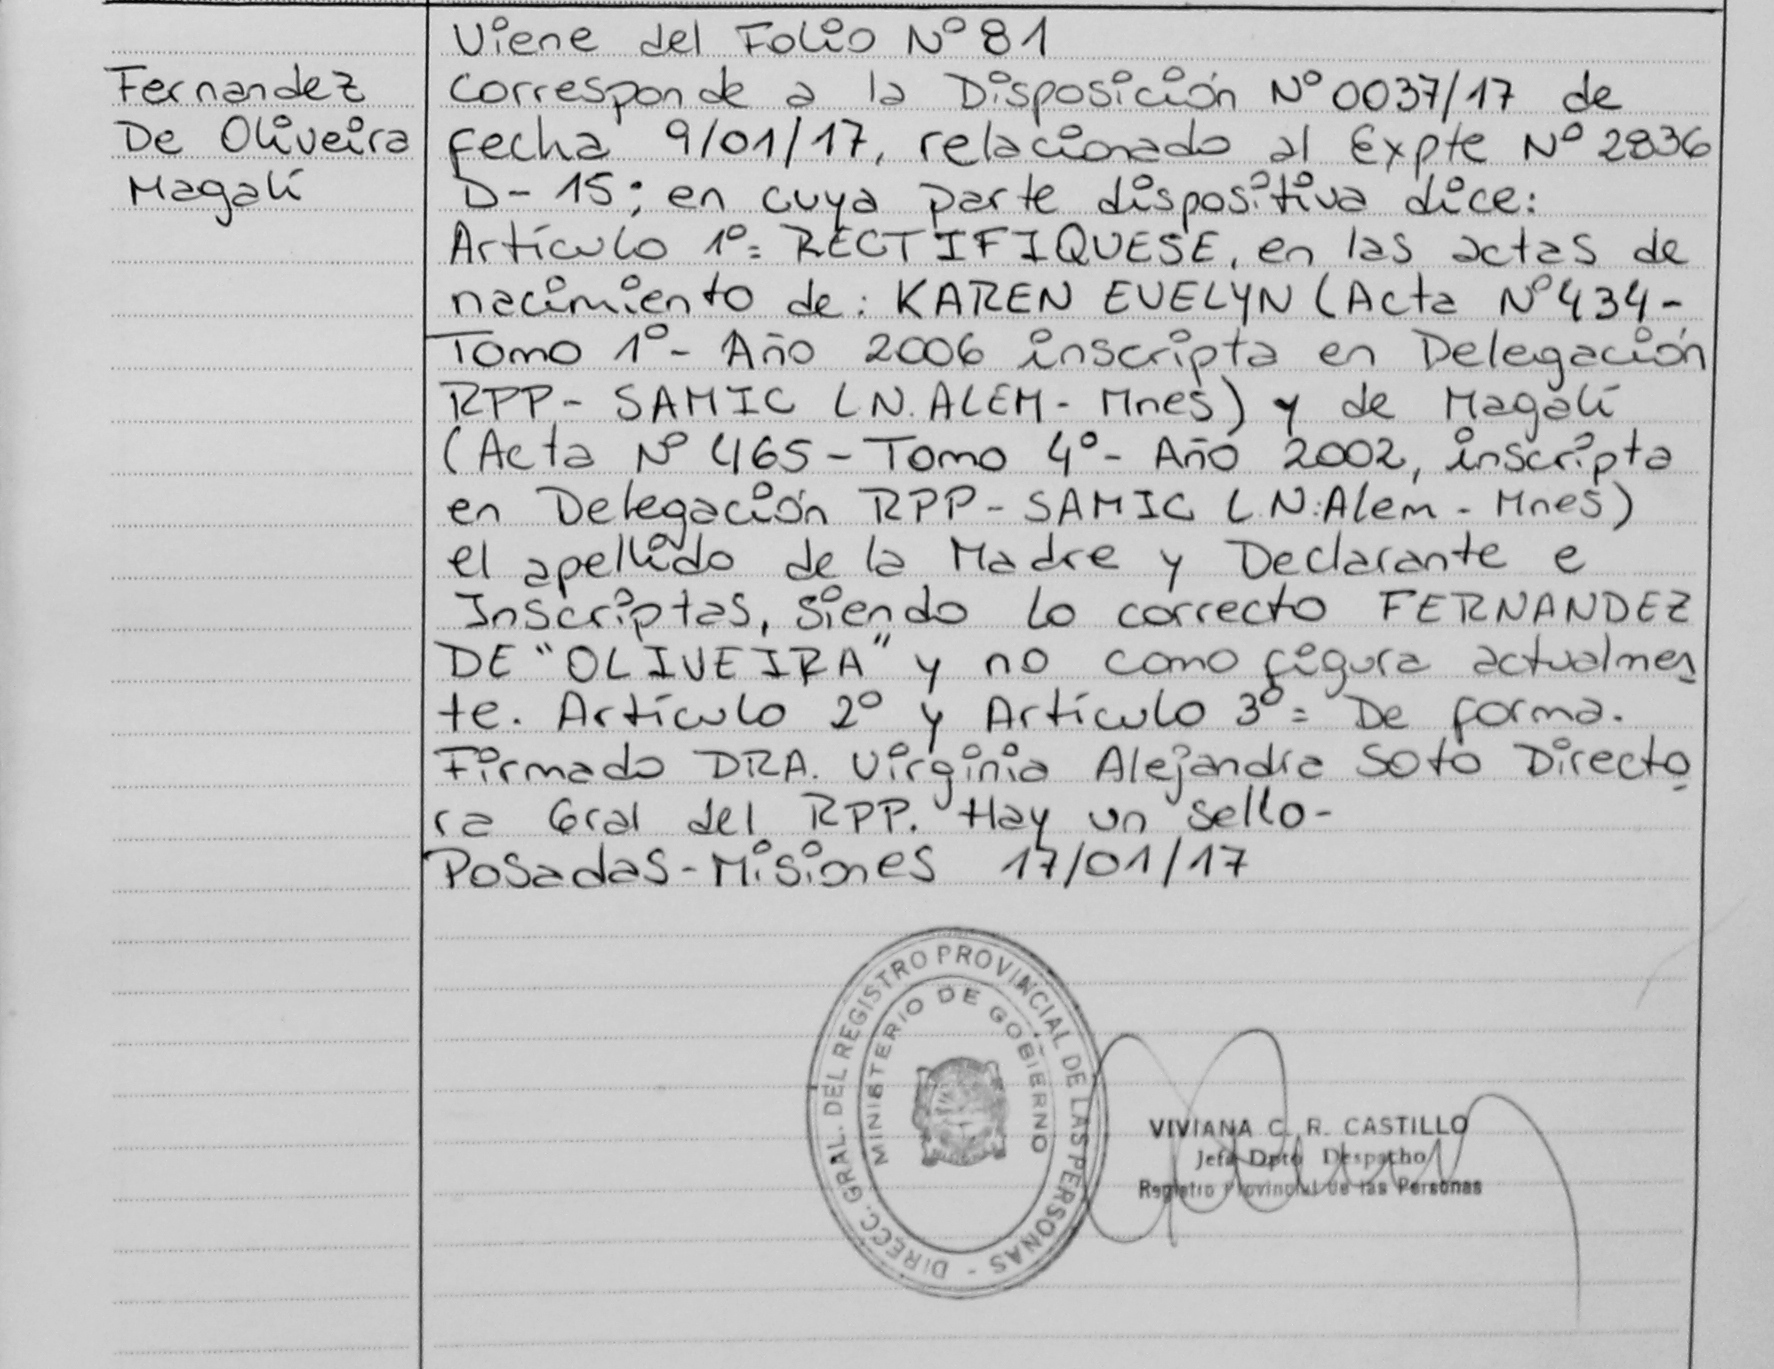 Viene del Folio Nº 81
Fernandez
De Oliveira
Magalí
Corresponde a la Disposición Nº 0037/17 de
fecha 9/01/17, relacionado al Expte Nº 2836
D- 15; en cuya parte dispositiva dice:
Artículo 1º= RECTIFIQUESE, en las actas de
nacimiento de: KAREN EVELYN (Acta Nº 434-
Tomo 1º- Año 2006 inscripta en Delegación
RPP- SAMIC L N. ALEM- Mnes) y de Magalí
(Acta Nº 465 - Tomo 4º- Año 2002, inscripta
en Delegación RPP- SAMIC L.N.Alem - Mnes)
el apellido de la Madre y Declarante e
Inscriptas, siendo lo correcto FERNANDEZ
DE "OLIVEIRA" y no como figura actualmen
te. Artículo 2º y Artículo 3º= De forma.
Firmado DRA. Virginia Alejandra Soto Directo
ra Gral del RPP. Hay un sello-
Posadas-Misiones 17/01/17
DIRECC. GRAL. DEL REGISTRO PROVINCIAL DE LAS PERSONAS -
MINISTERIO DE GOBIERNO
VIVIANA C. R. CASTILLO
Jefa Dpto Despacho
Registro Provincial de las Personas